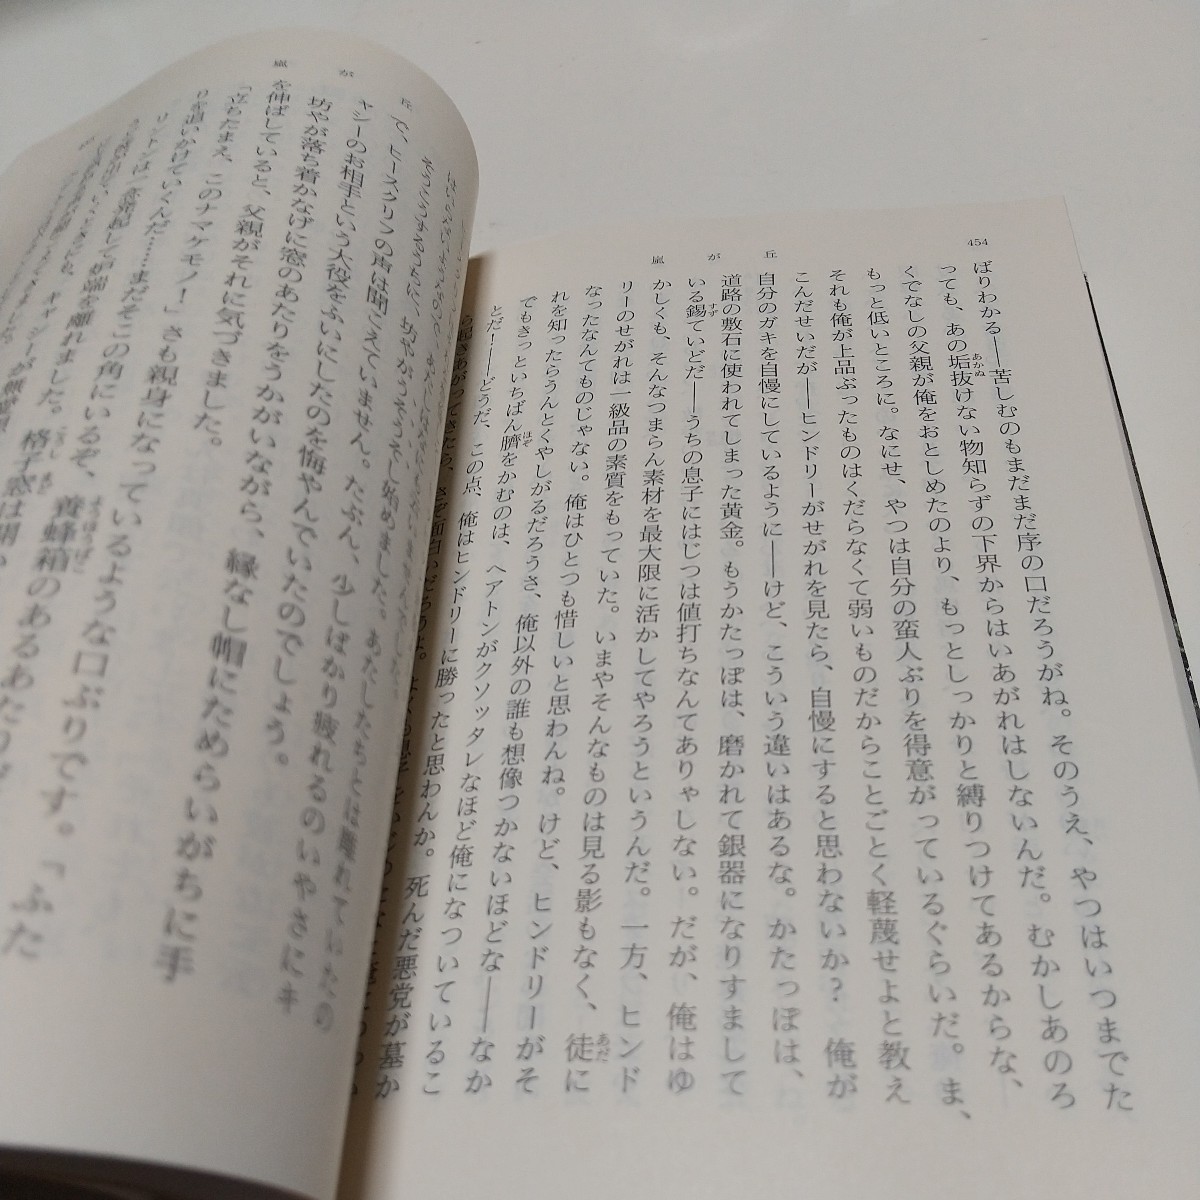 454
嵐が丘
ばりわかる――苦しむのもまだまだ序の口だろうがね。そのうえ、やつはいつまでた
っても、あの垢抜けない物知らずの下界からはいあがれはしないんだ。むかしあのろ
くでなしの父親が俺をおとしめたのより、もっとしっかりと縛りつけてあるからな、
もっと低いところに。なにせ、やつは自分の蛮人ぶりを得意がっているぐらいだ。ま、
それも俺が上品ぶったものはくだらなくて弱いものだからことごとく軽蔑せよと教え
こんだせいだが――ヒンドリーがせがれを見たら、自慢にすると思わないか？ 俺が
自分のガキを自慢にしているように――けど、こういう違いはあるな。かたっぽは、
道路の敷石に使われてしまった黄金。もうかたっぽは、磨かれて銀器になりすまして
いる錫ていどだ――うちの息子にはじつは値打ちなんてありゃしない。だが、俺はゆ
かしくも、そんなつまらん素材を最大限に活かしてやろうというんだ。一方、ヒンド
リーのせがれは一級品の素質をもっていた。いまやそんなものは見る影もなく、徒に
なったなんてものじゃない。俺はひとつも惜しいと思わんね。けど、ヒンドリーがそ
れを知ったらうんとくやしがるだろうさ、俺以外の誰も想像つかないほどな――なか
でもきっといちばん臍をかむのは、ヘアトンがクソッタレなほど俺になついているこ
とだ！――どうだ、この点、俺はヒンドリーに勝ったと思わんか。死んだ悪党が墓か
嵐が丘
そうこうするうちに、坊やがうそうそし始めました。あたしたちとは離れていたの
で、ヒースクリフの声は聞こえていません。たぶん、少しばかり疲れるのいやさにキ
ャシーのお相手という大役をふいにしたのを悔やんでいたのでしょう。
坊やが落ち着かなげに窓のあたりをうかがいながら、縁なし帽にためらいがちに手
を伸ばしていると、父親がそれに気づきました。
「立ちたまえ、このナマケモノ！」さも親身になっているような口ぶりです。「ふた
りを追いかけていくんだ……まだそこの角にいるぞ、養蜂箱のあるあたりだ
リントンは一念発起して炉端を離れました。格子窓は開い